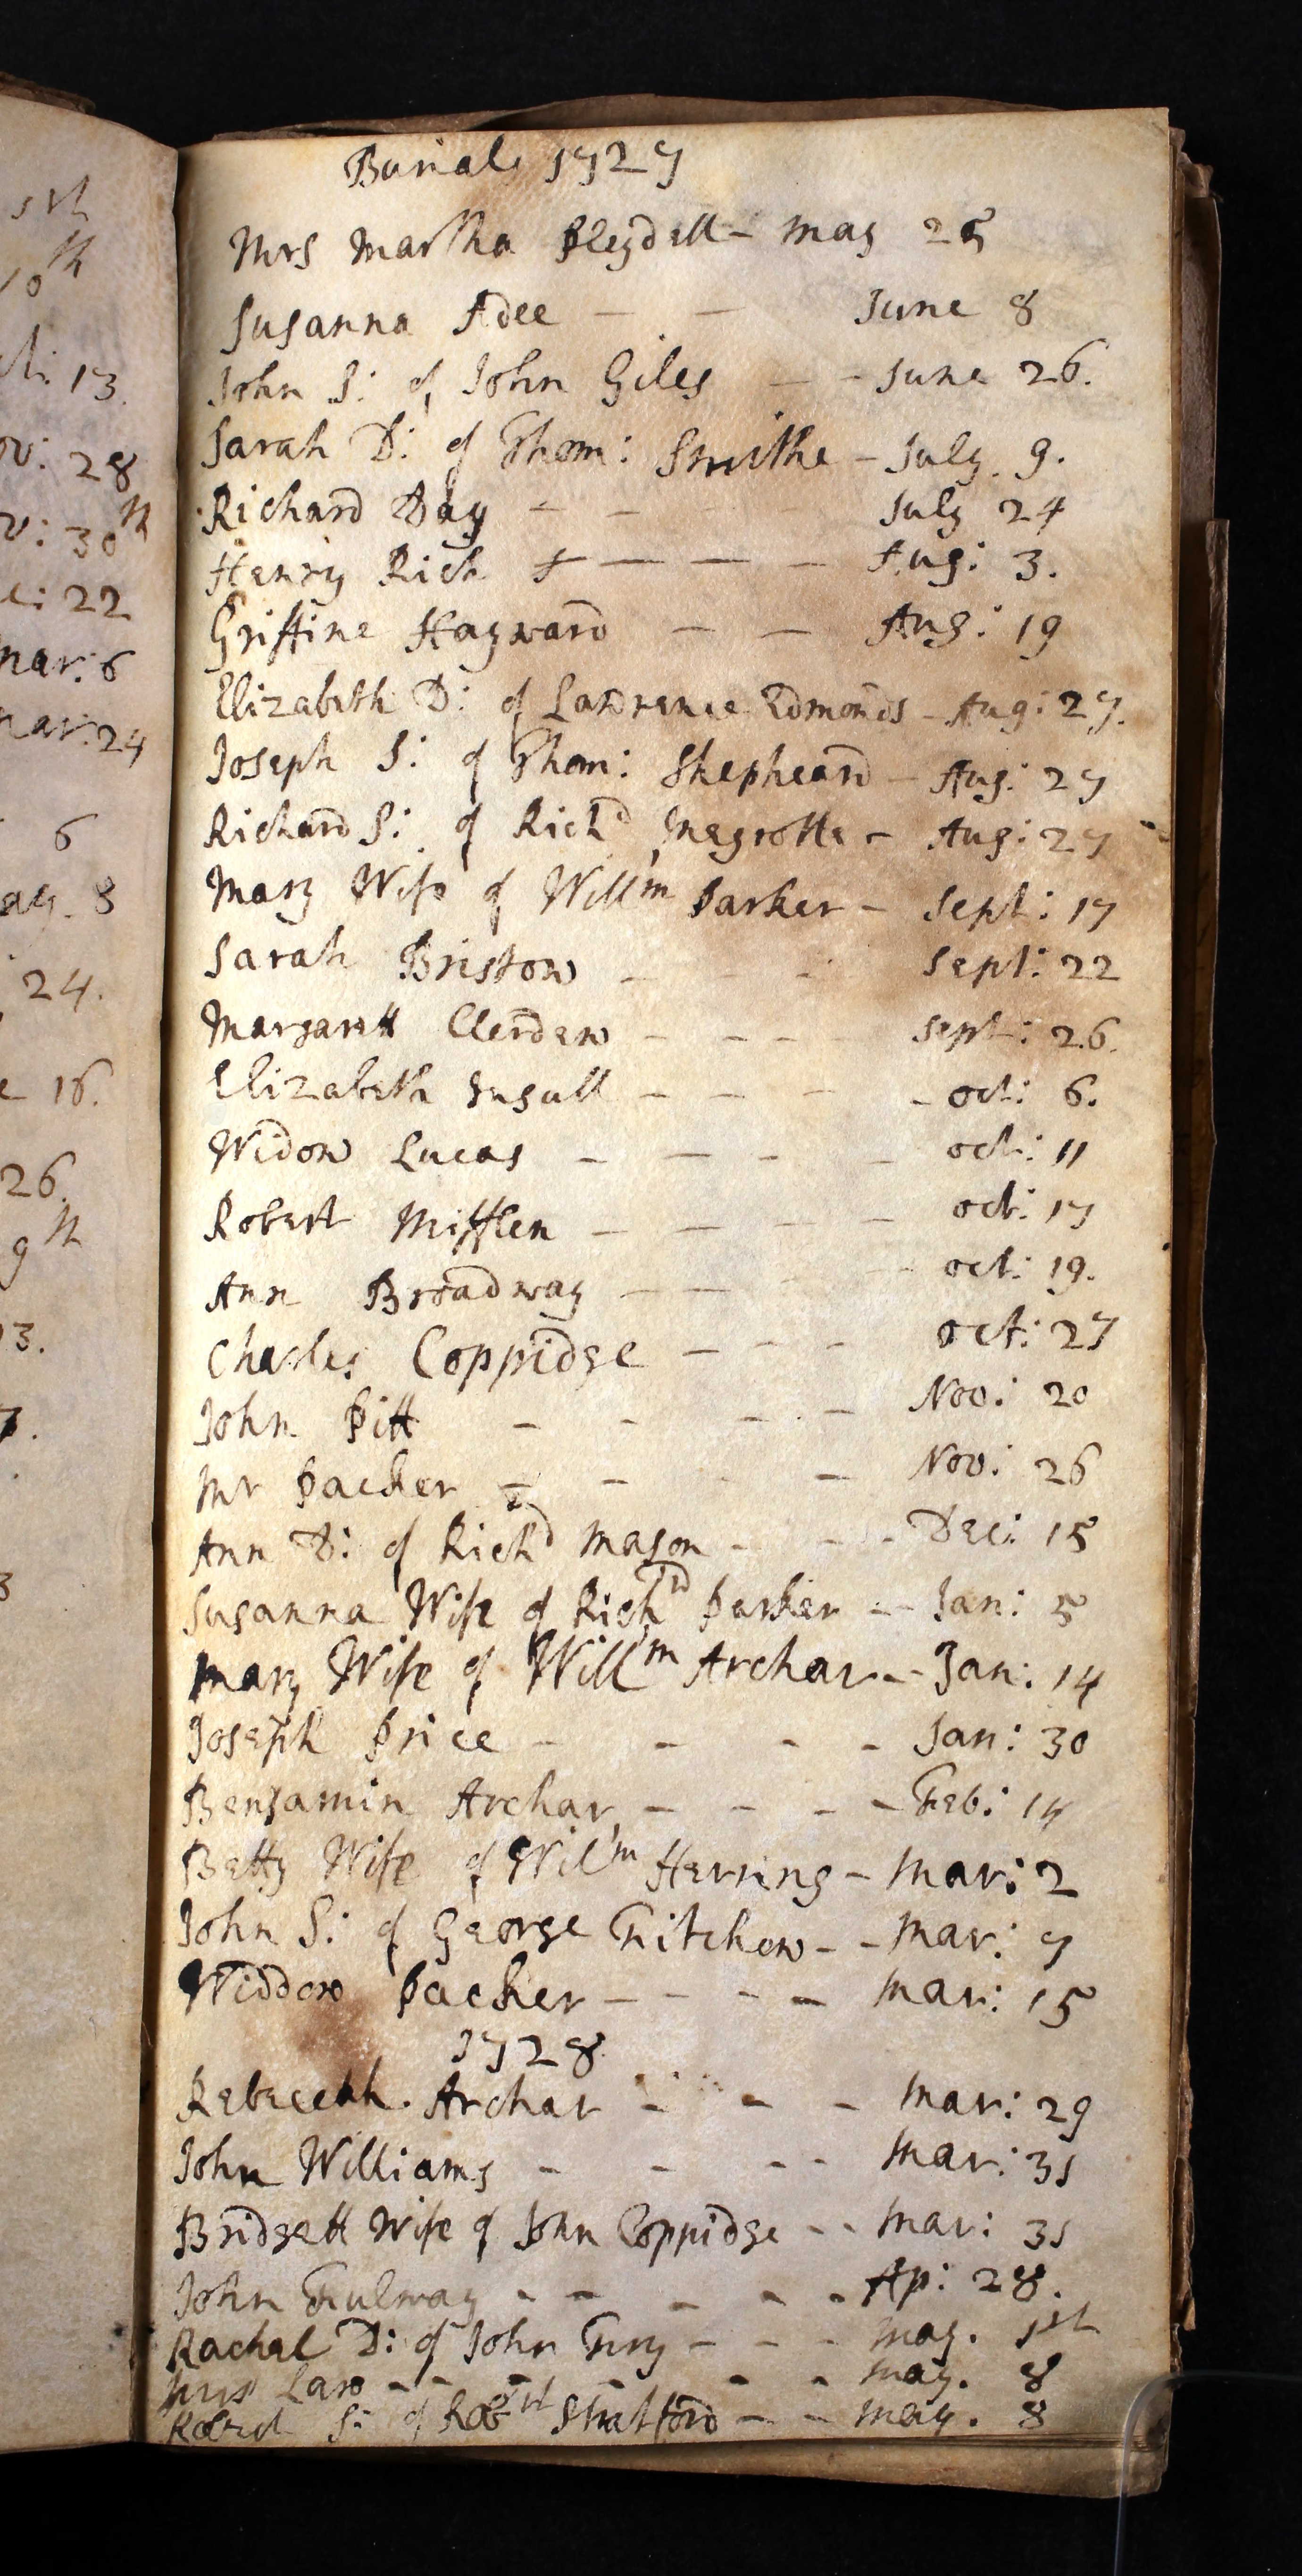 5th
10th
ch: 13.
ov: 28
v: 30th
ec: 22
mar: 6
mar: 24
6
ay. 8
24.
e 16.
26.
9th
13.
7.
3
Burials 1727
Mrs Martha Pleydell - May 25
Susanna Adee - - June 8
John S: of John Giles - - June 26.
Sarah D: of Thom: Smithe - July. 9.
Richard Day - - - - July 24
Henry Rich - - - - Aug: 3.
Griffine Hayward - - Aug: 19
Elizabeth D: of Lawrence Edmonds - Aug: 27.
Joseph S: of Thom: Shepheard - Aug: 27
Richard S: of Richd Megrotte - Aug: 27
Mary Wife of Willm Parker - Sept: 17
Sarah Bristow - - - Sept: 22
Margarett Clerdew - - - - Sept: 26.
Elizabeth Insull - - - - oct: 6.
Widow Lucas - - - - oct: 11
Robert Mifflen - - - - oct: 17
Ann Broadway - - - - oct: 19.
Charles Coppidge - - - oct: 27
John Pitt - - - - Nov: 20
Mr Packer - - - - Nov: 26
Ann D: of Richd Mason - - - Dec: 15
Susanna Wife of Richd Parker - - Jan: 5
Mary Wife of Willm Archar - - Jan: 14
Joseph Price - - - - Jan: 30
Benjamin Archar - - - - Feb: 14
Betty Wife of Wilm Herring - Mar: 2
John S: of George Fitchew - - Mar: 7
Widdow Packer - - - - Mar: 15
1728
Rebeccah Archar - - - Mar: 29
John Williams - - - - Mar: 31
Bridgett Wife of John Coppidge - - Mar: 31
John Fulway - - - - - Ap: 28.
Rachel D: of John Fury - - - May. 1st
Law - - - - - - May. 8
Robert S: of Robrt Stratford - - May. 8